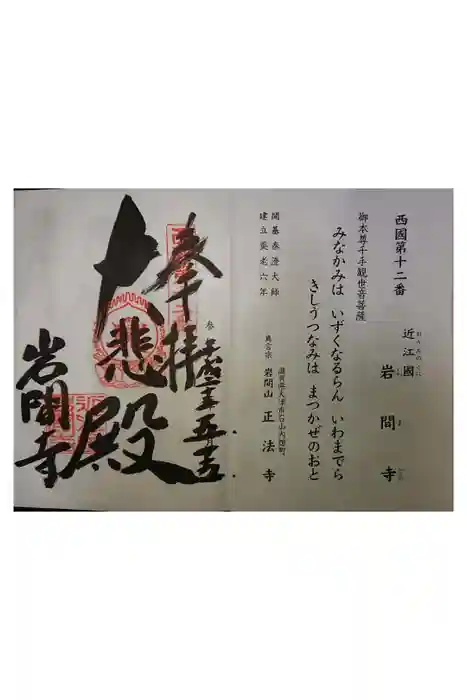 西國第十二番
近江國
岩間寺
御本尊千手観世音菩薩
みなかみは いずくなるらん いわまでら
きしうつなみは まつかぜのおと
開基泰澄大師
建立養老六年
真言宗 岩間山 正法寺
奉拝
大悲殿
岩間寺